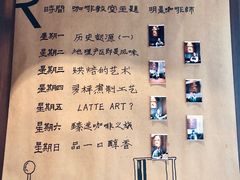 R 時間 咖啡教室主題 明星咖啡師
星期一 历史起源(一)
星期二 地理产区与风味
星期三 烘焙的艺术
星期四 多样煮制工艺
星期五 LATTE ART?
星期六 臻选咖啡之旅
星期日 品一口醇香